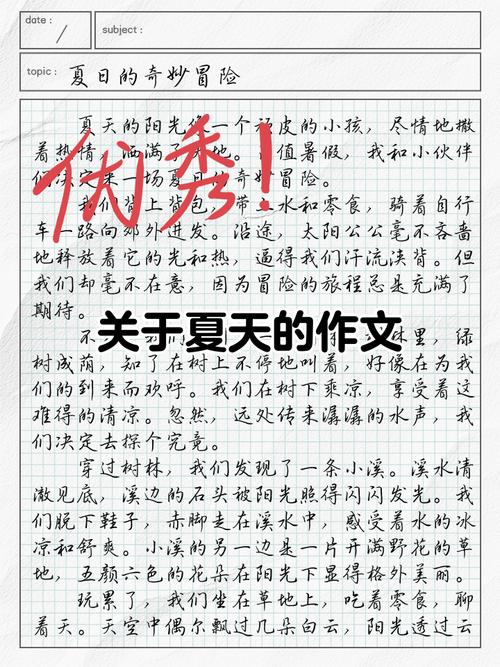 date :
subject :
topic : 夏日的奇妙冒险
夏天的阳光像一个顽皮的小孩，尽情地撒
着热情，洒满了大地。正值暑假，我和小伙伴
们决定来一场夏日的奇妙冒险。
优秀！
我们背上背包，带上水和零食，骑着自行
车一路向郊外进发。沿途，太阳公公毫不吝啬
地释放着它的光和热，逼得我们汗流浃背。但
我们却毫不在意，因为冒险的旅程总是充满了
期待。
关于夏天的作文
不 我们 林里，绿
树成荫，知了在树上不停地叫着，好像在为我
们的到来而欢呼。我们在树下乘凉，享受着这
难得的清凉。忽然，远处传来潺潺的水声，我
们决定去探个究竟。
穿过树林，我们发现了一条小溪。溪水清
澈见底，溪边的石头被阳光照得闪闪发光。我
们脱下鞋子，赤脚走在溪水中，感受着水的冰
凉和舒爽。小溪的另一边是一片开满野花的草
地，五颜六色的花朵在阳光下显得格外美丽。
玩累了，我们坐在草地上，吃着零食，聊
着天。天空中偶尔飘过几朵白云，阳光透过云